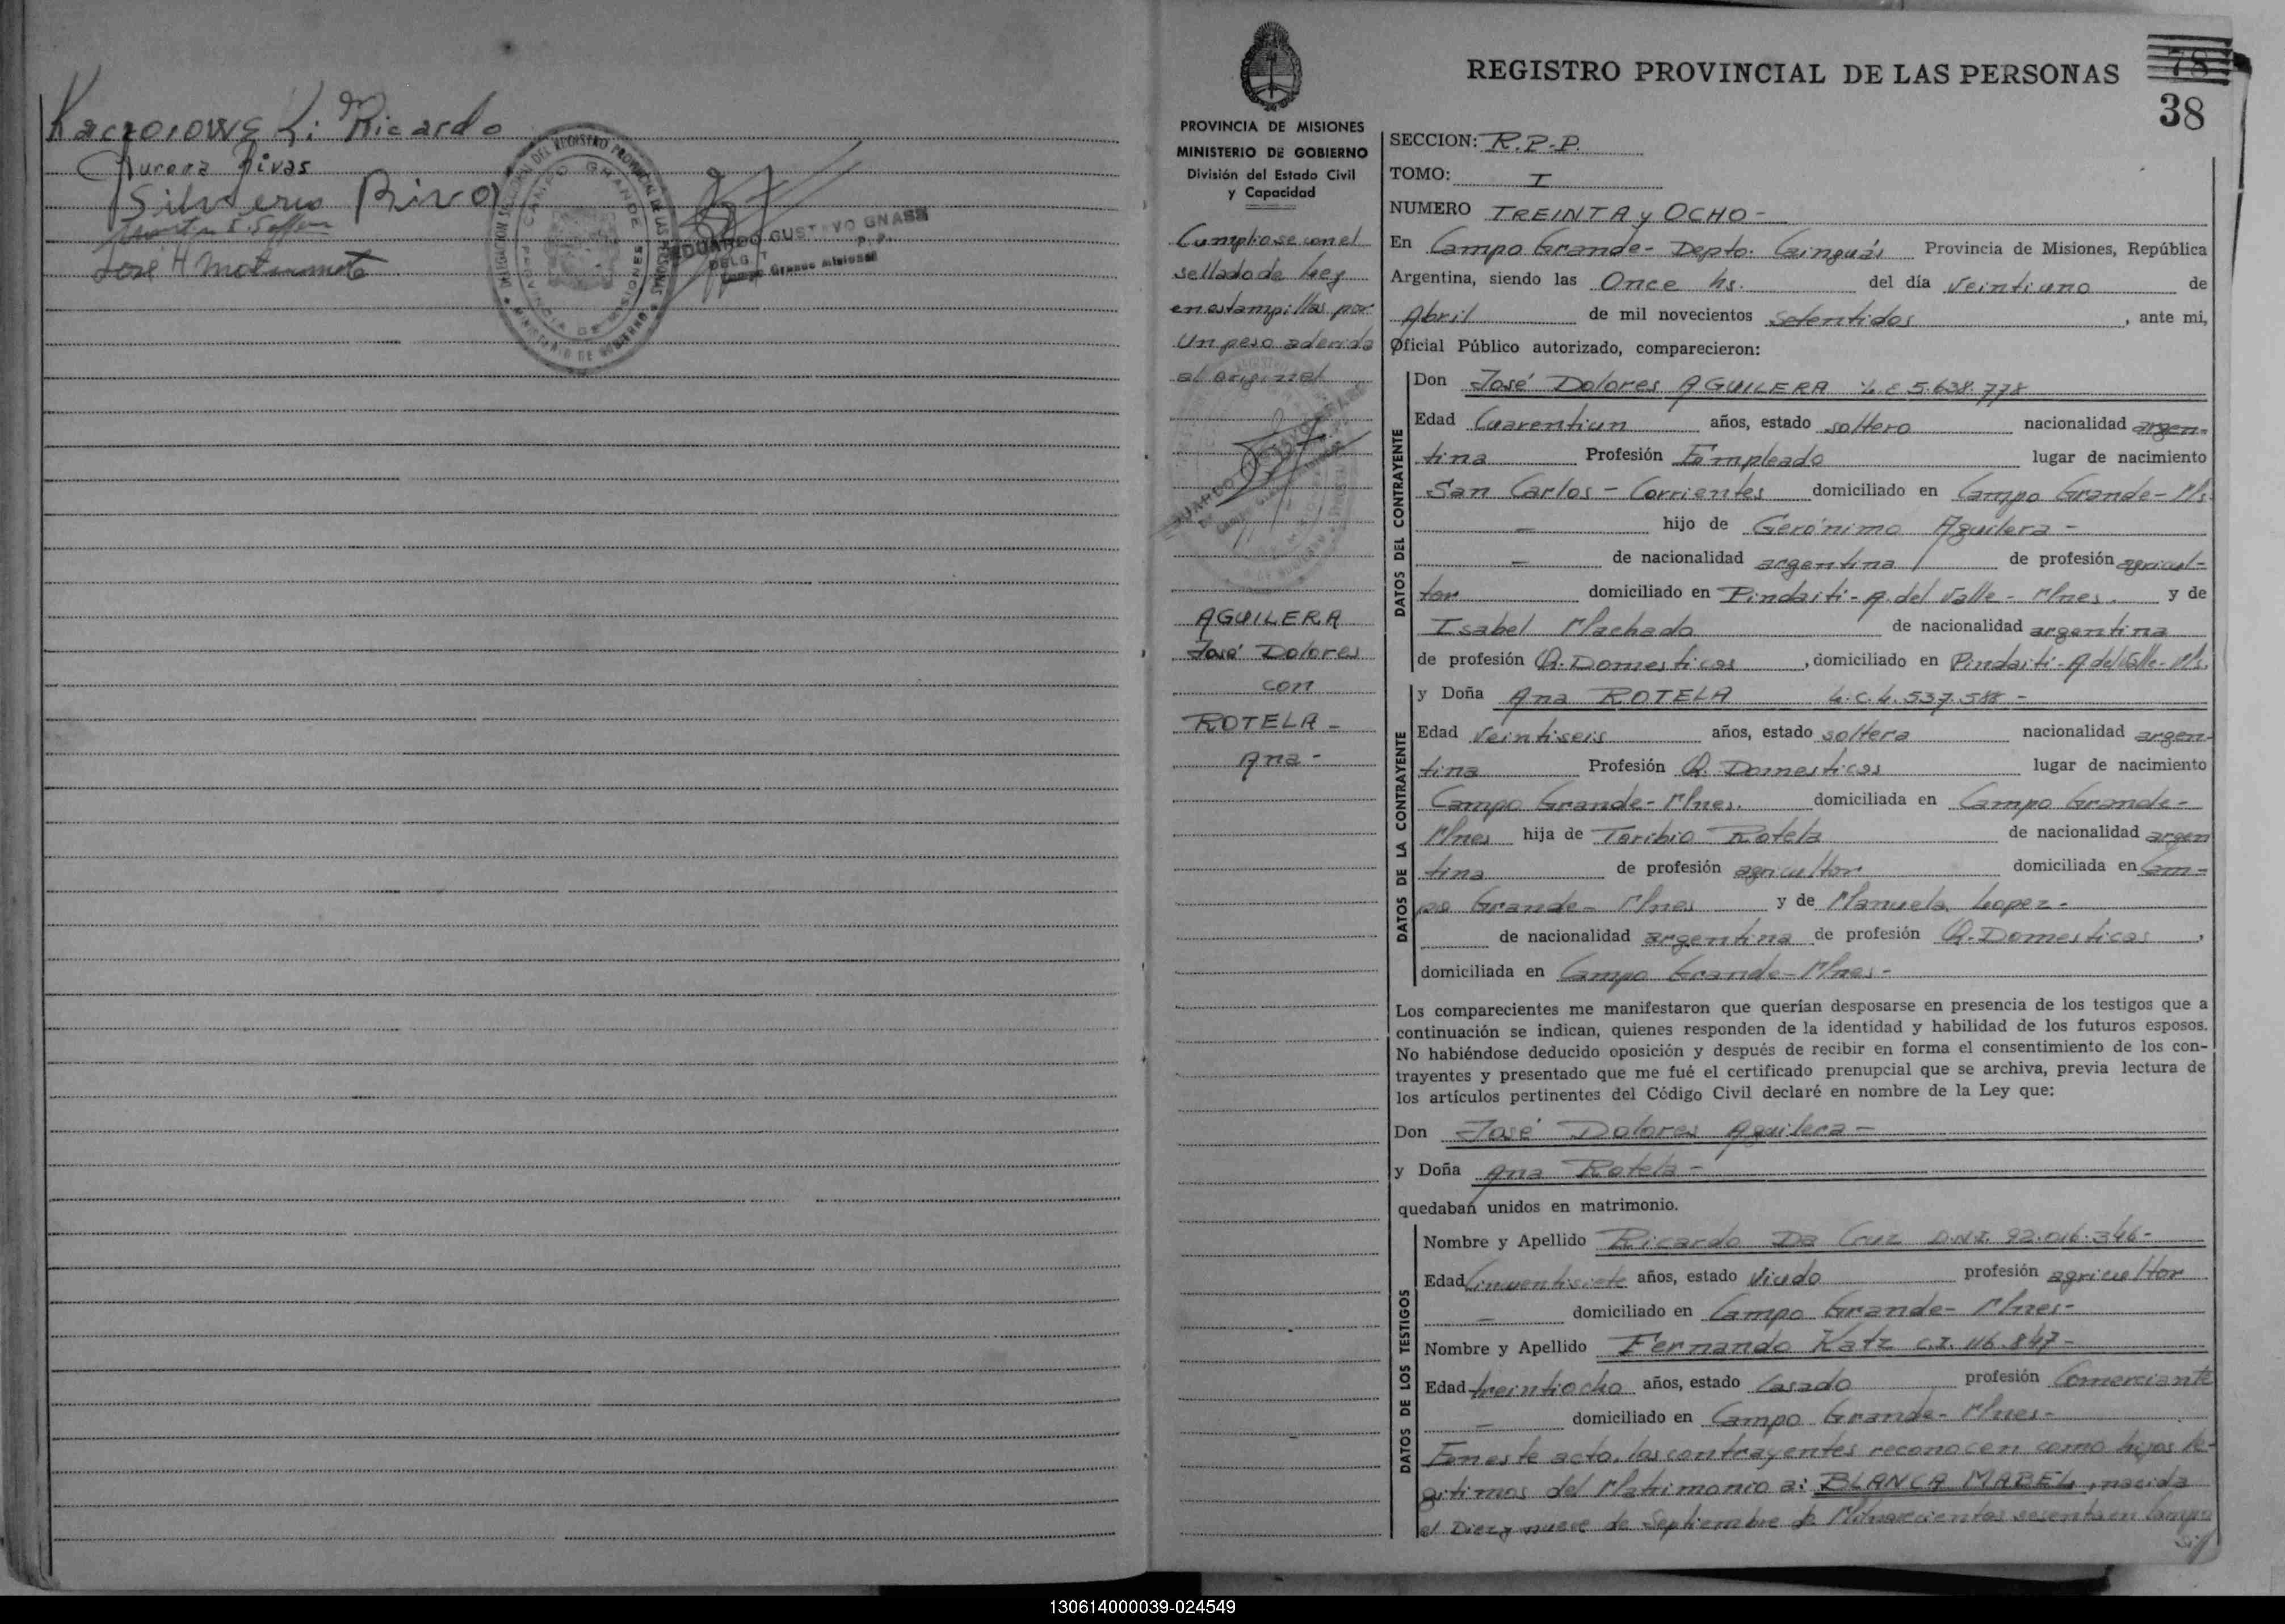 Kaczorowski Ricardo
Aurora Rivas
Silverio Riva
José H
DELEGACION SECCIONAL DEL REGISTRO PROVINCIAL DE LAS PERSONAS
CAMPO GRANDE
PROVINCIA DE MISIONES
MINISTERIO DE GOBIERNO
EDUARDO GUSTAVO GNASS
Campo Grande Misiones
REGISTRO PROVINCIAL DE LAS PERSONAS
78
38
PROVINCIA DE MISIONES
MINISTERIO DE GOBIERNO
División del Estado Civil
y Capacidad
Cumpliose con el
sellado de Ley
en estampillas por
Un peso aderido
al original
AGUILERA
José Dolores
con
ROTELA -
Ana -
SECCION: R.P.P.
TOMO: I
NUMERO TREINTA y OCHO -
En Campo Grande - Depto. Cainguás Provincia de Misiones, República
Argentina, siendo las Once hs. del día veintiuno de
Abril de mil novecientos setentidos, ante mi,
Oficial Público autorizado, comparecieron:
DATOS DEL CONTRAYENTE
Don José Dolores AGUILERA L.E 5.638.778
Edad Cuarentiun años, estado soltero nacionalidad argen-
tina Profesión Empleado lugar de nacimiento
San Carlos - Corrientes domiciliado en Campo Grande - Ms.
- hijo de Gerónimo Aguilera -
- de nacionalidad argentina de profesión agricul-
tor domiciliado en Pindaiti - A. del Valle - Mnes. y de
Isabel Machado de nacionalidad argentina
de profesión Q. Domesticos, domiciliado en Pindaiti - A del Valle - Ms.
DATOS DE LA CONTRAYENTE
y Doña Ana ROTELA L.C. 4.537.588 -
Edad Veintiseis años, estado soltera nacionalidad argen-
tina Profesión Q. Domesticos lugar de nacimiento
Campo Grande - Mnes. domiciliada en Campo Grande -
Mnes hija de Toribio Rotela de nacionalidad argen
tina de profesión agricultor domiciliada en Cam-
po Grande - Mnes y de Manuela Lopez -
de nacionalidad argentina de profesión Q. Domesticas,
domiciliada en Campo Grande - Mnes -
Los comparecientes me manifestaron que querían desposarse en presencia de los testigos que a
continuación se indican, quienes responden de la identidad y habilidad de los futuros esposos.
No habiéndose deducido oposición y después de recibir en forma el consentimiento de los con-
trayentes y presentado que me fué el certificado prenupcial que se archiva, previa lectura de
los artículos pertinentes del Código Civil declaré en nombre de la Ley que:
Don José Dolores Aguilera -
y Doña Ana Rotela -
quedaban unidos en matrimonio.
DATOS DE LOS TESTIGOS
Nombre y Apellido Ricardo Da Cruz D.N.I. 92.016.346 -
Edad Cincuentisiete años, estado Viudo profesión agricultor
- domiciliado en Campo Grande - Mnes -
Nombre y Apellido Fernando Katz C.I. 116.847 -
Edad treintiocho años, estado Casado profesión Comerciante
- domiciliado en Campo Grande - Mnes -
En este acto, los contrayentes reconocen como hijos le-
gitimos del Matrimonio a: BLANCA MABEL, nacida
el Diez y nueve de Septiembre de Milnovecientos sesenta en Campo
130614000039-024549